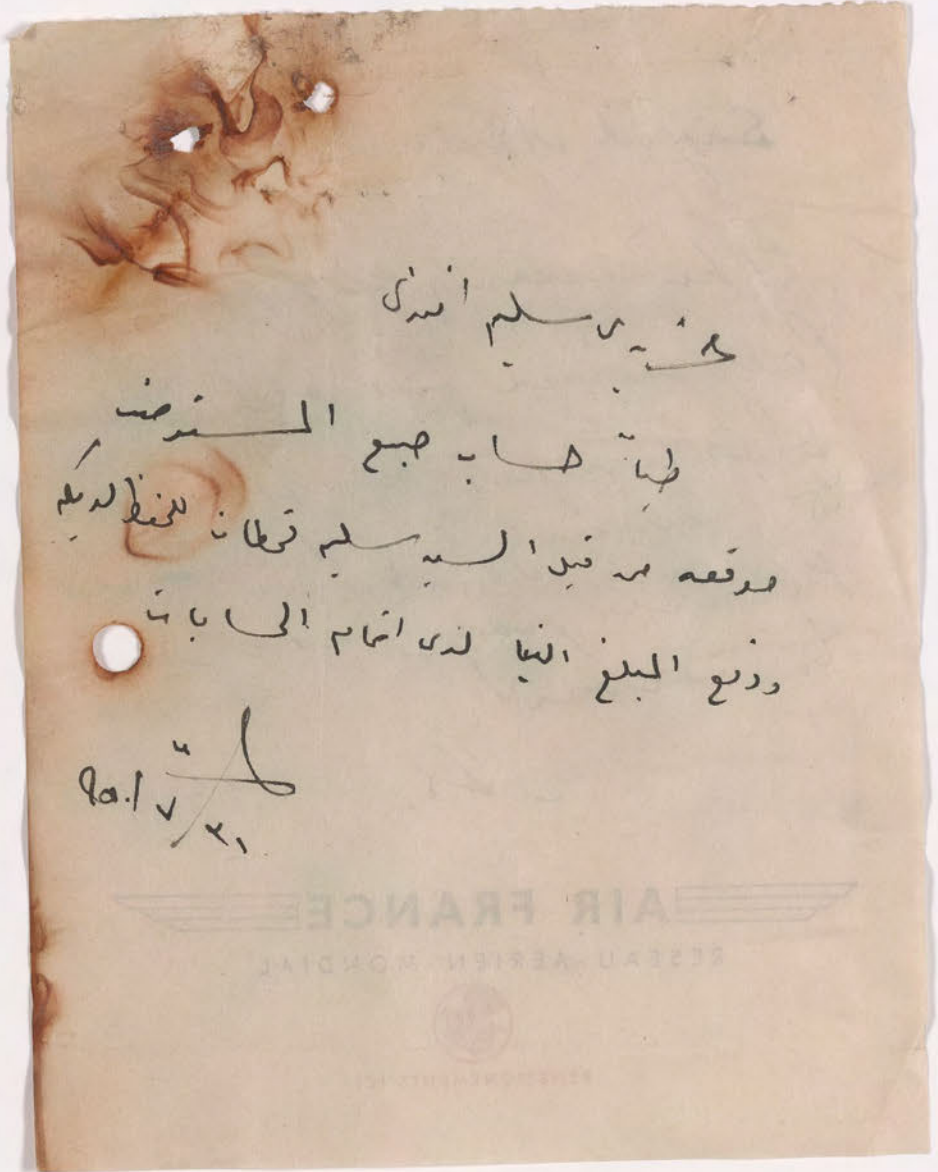 عزيزي سليم افندي
طياً حساب صبغ المستوصف
موقعه من قبل السيد سليم قحطان للحفظ لديكم
ودفع المبلغ الينا لدى اتمام الحسابات
٩٥٠/٧/٣١
AIR FRANCE
RESEAU AERIEN MONDIAL